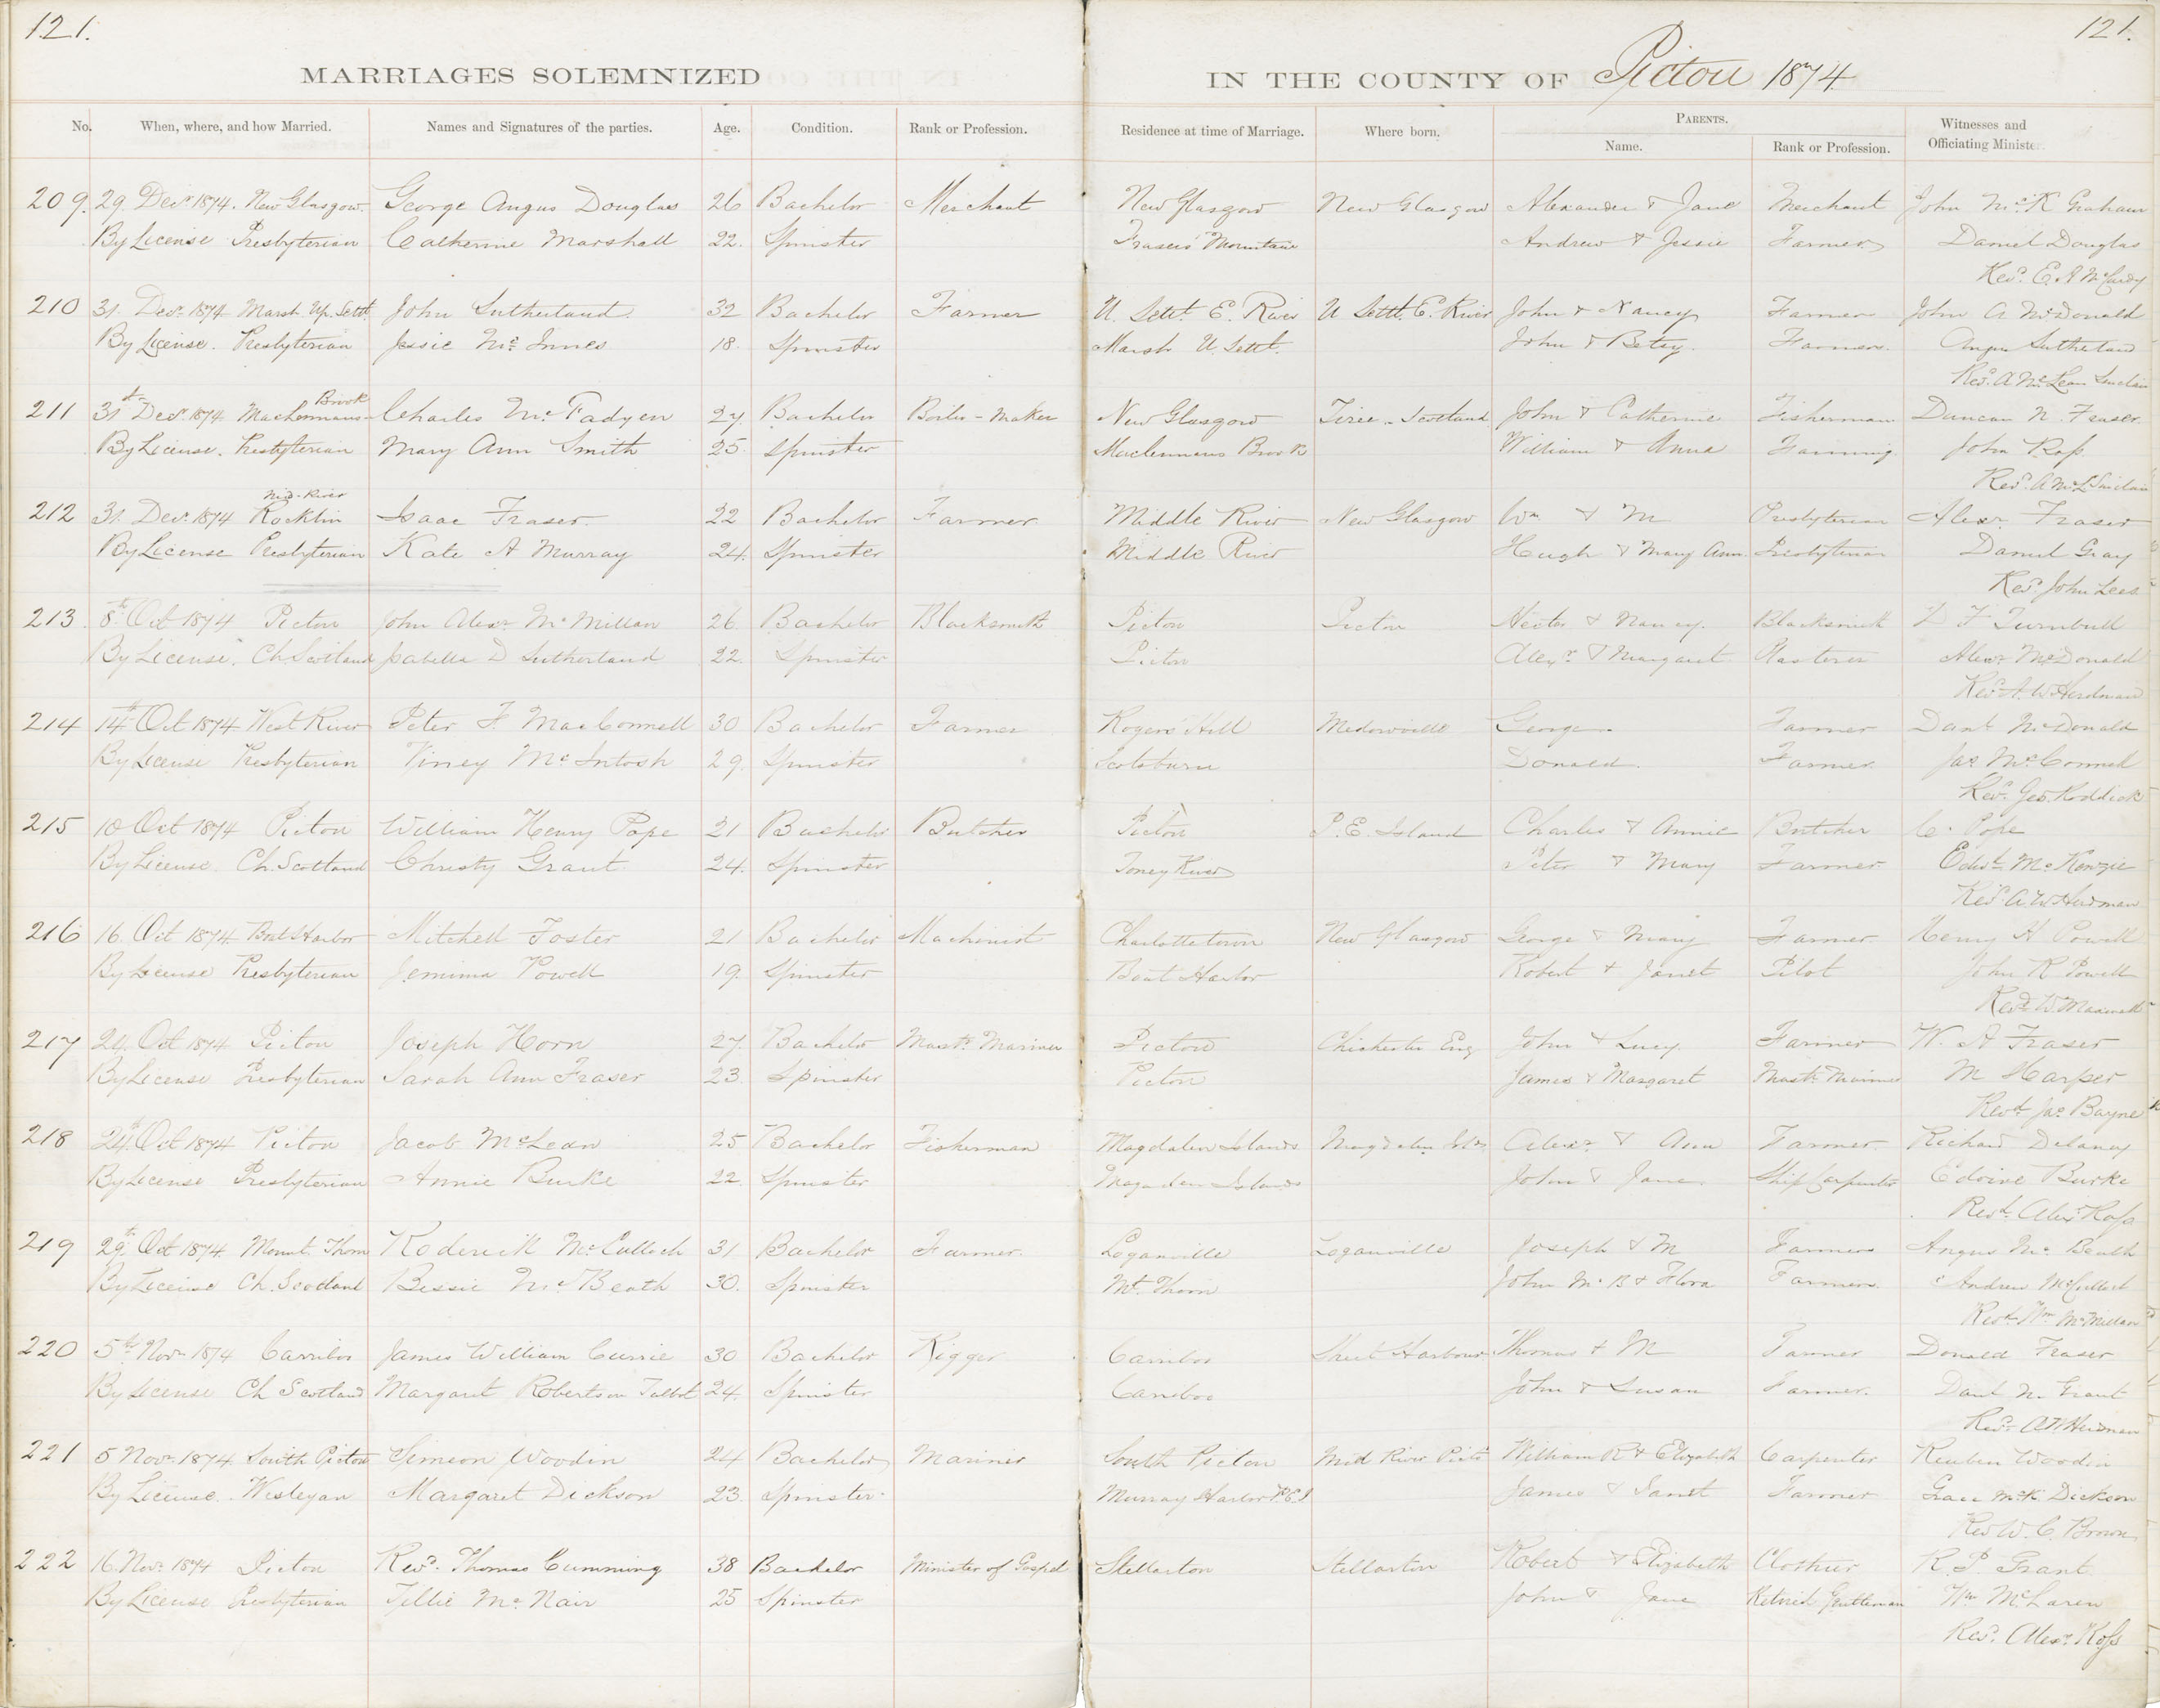 121.
121.
MARRIAGES SOLEMNIZED IN THE COUNTY OF Pictou 1874
No. When, where, and how Married. Names and Signatures of the parties. Age. Condition. Rank or Profession. Residence at time of Marriage. Where born. PARENTS. Name. Rank or Profession. Witnesses and Officiating Ministe
209. 29. Decr 1874. New Glasgow. George Angus Douglas 26 Bachelor Merchant New Glasgow New Glasgow Alexander & Jane Merchant John McK Graham
By License Presbyterian Catherine Marshall 22. Spinster Frasers Mountain Andrew & Jessie Farmer Daniel Douglas
Revd. E. A McCurdy
210 31. Decr 1874 Marsh Up. Settt. John Sutherland 32 Bachelor Farmer U. Settt. E. River U Settt. E. River John & Nancy Farmer John A McDonald
By License. Presbyterian Jessie McInnes 18. Spinster Marsh U. Settt. John & Betsy. Farmer. Angus Sutherland
Revd. A McLean Sinclair
Brook
211 31st Decr 1874 MacLennans Charles McFadyen 27 Bachelor Boiler-Maker New Glasgow Tiree. Scotland John & Catherine Fisherman Duncan N. Fraser.
By License. Presbyterian Mary Ann Smith 25. Spinster Maclennans Brook William & Anna Farming John Ross.
Revd. A McL Sinclair
Mid-River
212 31. Decr 1874 Rocklin Isaac Fraser. 22 Bachelor Farmer Middle River New Glasgow Wm & M Presbyterian Alexr. Fraser
By License Presbyterian Kate A Murray 24. Spinster Middle River Hugh & Mary Ann. Presbyterian Daniel Gray
Revd. John Lees
213 8th Oct 1874 Pictou John Alexr McMillan 26 Bachelor Blacksmith Pictou Pictou Hector & Nancy. Blacksmith Turnbull
By License. Ch. Scotland Isabella D Sutherland 22. Spinster Pictou Alexr & Margaret Plasterer Alexr McDonald
Revd. A. W. Herdman
214 14th Oct 1874 West River Peter F. MacConnell 30 Bachelor Farmer Rogers Hill Medowville George. Farmer Danl McDonald
By License Presbyterian Viney McIntosh 29. Spinster Scotsburn Donald. Farmer. Jas McConnell
Revd. Geo. Roddick
215 10 Oct 1874 Pictou William Henry Pope 21 Bachelor Butcher Pictou P. E. Island Charles & Annie Butcher C. Pope
By License. Ch. Scotland Christy Grant. 24. Spinster Toney River Peter & Mary Farmer. Edwd. McKenzie
Revd. A. W Herdman
216 16 Oct 1874 Boat Harbor Mitchell Foster 21 Bachelor Machinist Charlottetown New Glasgow George & Mary Farmer Henry H Powell
By License Presbyterian Jemima Powell 19. Spinster Boat Harbor Robert & Janet Pilot John R Powell
Revd. W. Maxwell
217 Oct 1874 Pictou Joseph Horn 27. Bachelor Mastr Mariner Pictou Chichester Eng John & Lucy. Farmer W. A Fraser
By License Presbyterian Sarah Ann Fraser 23. Spinster Pictou James & Margaret Mastr Mariner M Harper
Revd. Jas Bayne
218 24th Oct 1874 Pictou Jacob McLean 25 Bachelor Fisherman Magdalen Islands Magdalen Isles Alexr & Ann Farmer Richard Delaney
By License Presbyterian Annie Burke 22. Spinster Magdalen Islands John & Jane Ship Carpenter Burke
Revd. Alexr Ross
219 29th Oct 1874. Mount Thom Roderick McCulloch 31 Bachelor Farmer. Loganville Loganville Joseph & M Farmers Angus McBeath
By License Ch. Scotland Bessie McBeath 30. Spinster Mt. Thom John McB & Flora Farmers. Andrew McCulloch
Revd. Wm McMillan
220 5th Novr 1874 Carriboo James William Currie 30 Bachelor Rigger Cariboo Sheet Harbour Thomas & M Farmer Donald Fraser
By License Ch Scotland Margaret Robertson Talbot 24. Spinster Cariboo John & Susan Farmer. Danl Grant
Revd. A W Herdman
221 5 Novr 1874 South Pictou Simeon Woodin 24 Bachelor Mariner South Pictou Mid River Picto William R & Elizabeth Carpenter Reuben Woodin
By License. Wesleyan Margaret Dickson 23. Spinster. Murray Harbor P.E.I James & Janet Farmer Grace McK. Dickson
Rev W. C. Brown
222 16. Novr 1874 Pictou Revd. Thomas Cumming 38 Bachelor Minister of Gospel Stellarton Stellarton Robert & Elizabeth Clothier R. P. Grant
By License Presbyterian Tillie McNair 25 Spinster John & Jane Retired Gentleman Wm McLaren
Revd. Alexr. Ross